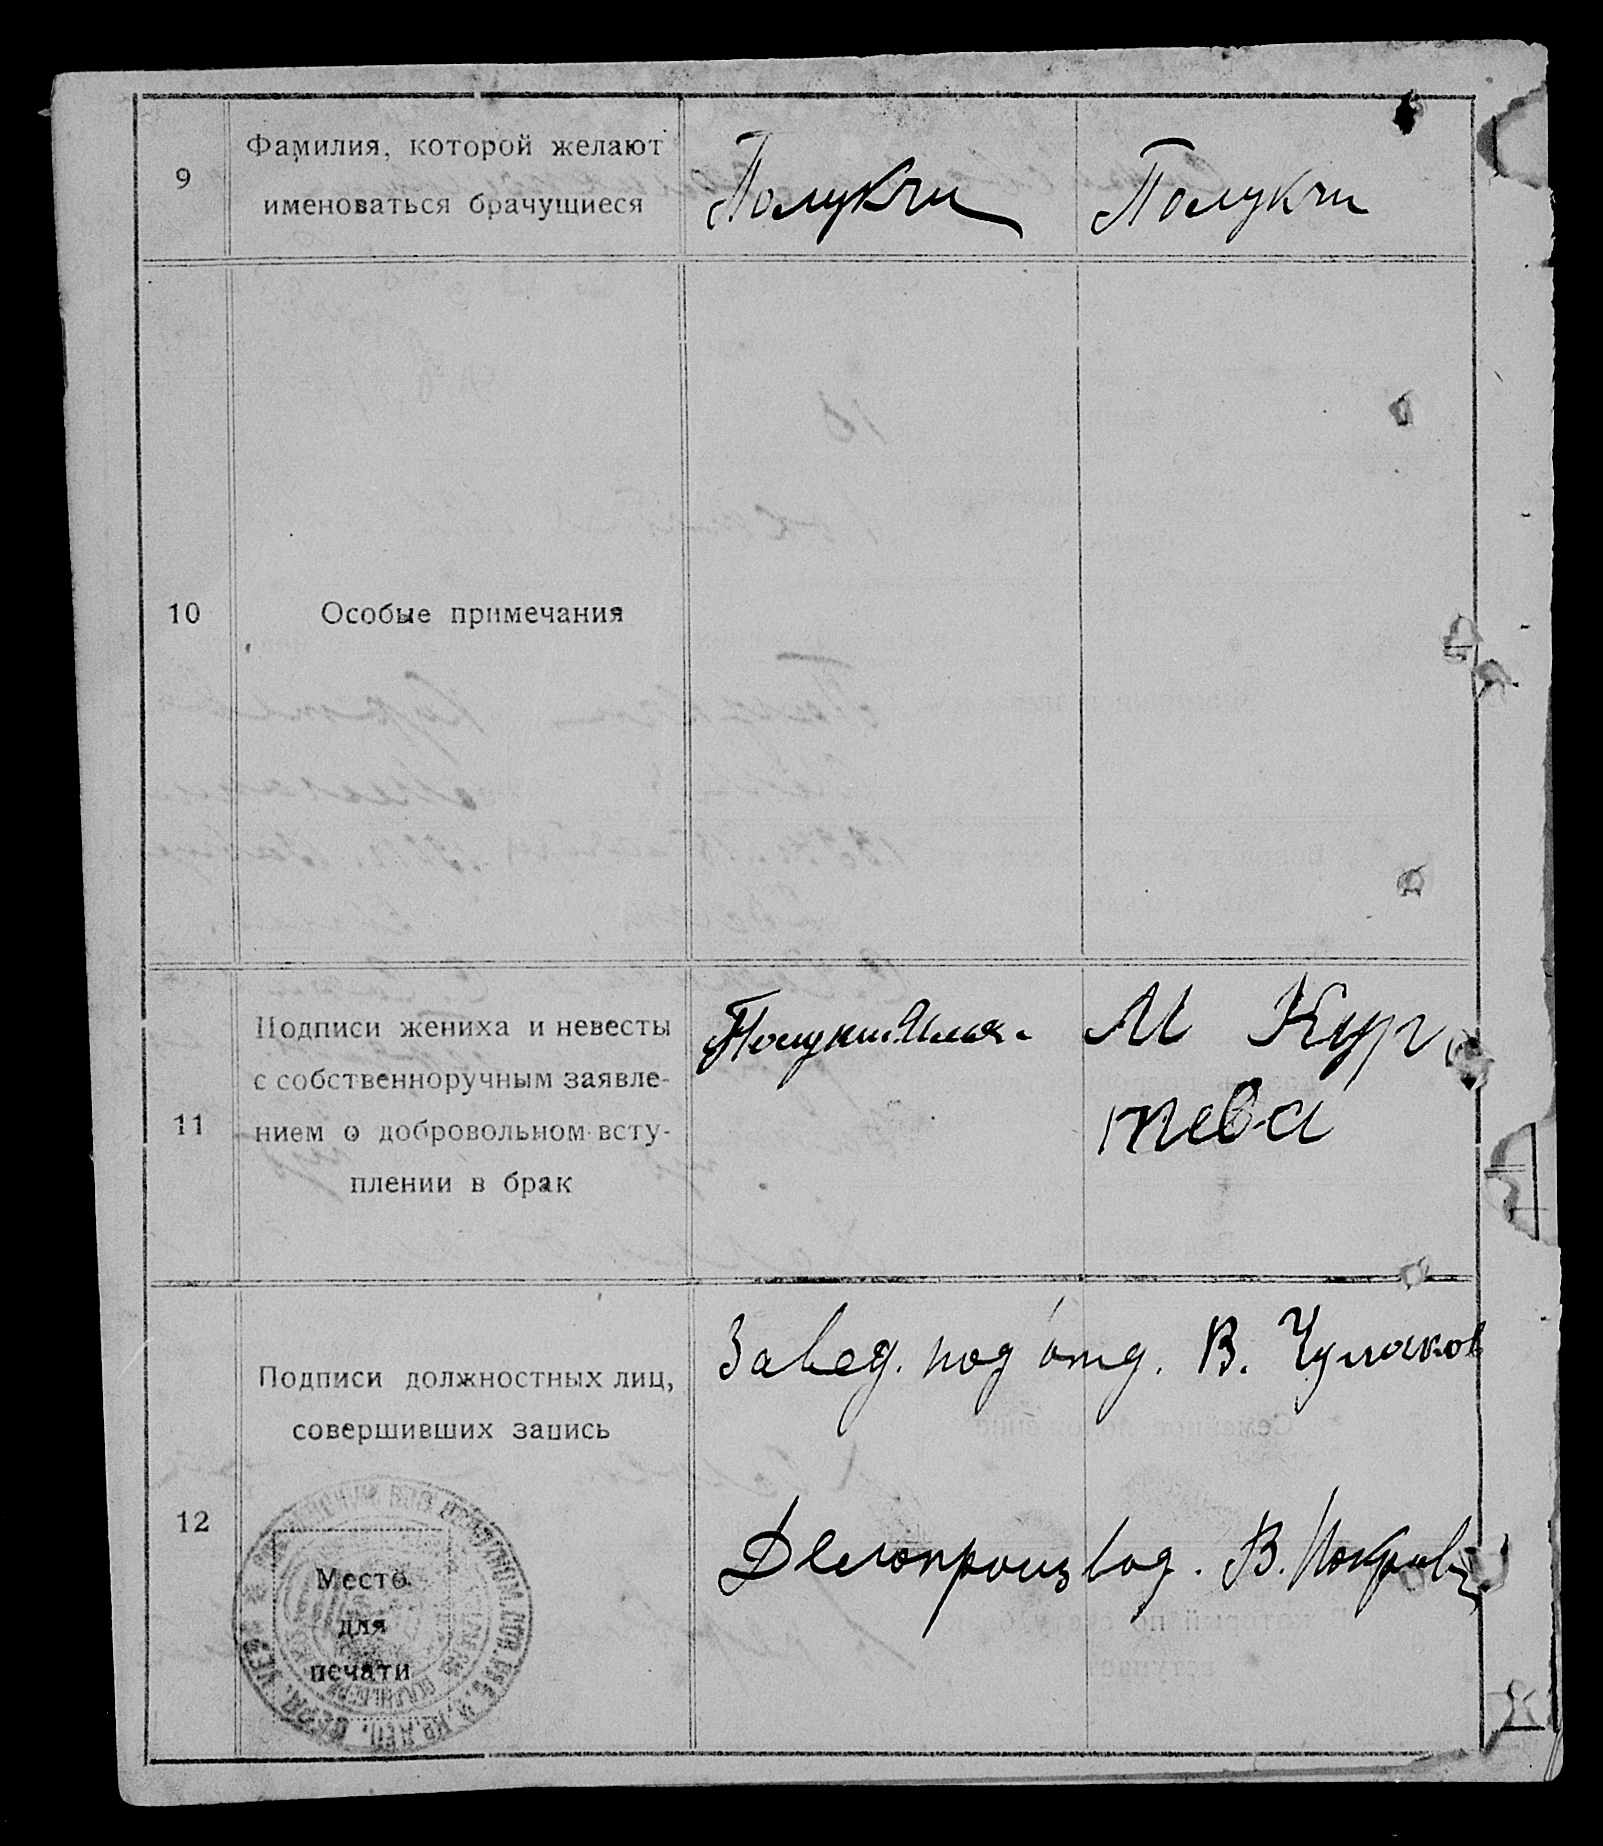 9
Фамилия, которой желают
именоваться брачущиеся
Полукчи Полукчи
10
Особые примечания
11
Подписи жениха и невесты
с собственноручным заявле-
нием о добровольном всту-
плении в брак
М Кур
тева
12
Подписи должностных лиц,
совершивших запись
Завед. под отд. В. Чумаков
Делопроизвод. В.
Место
для
печати